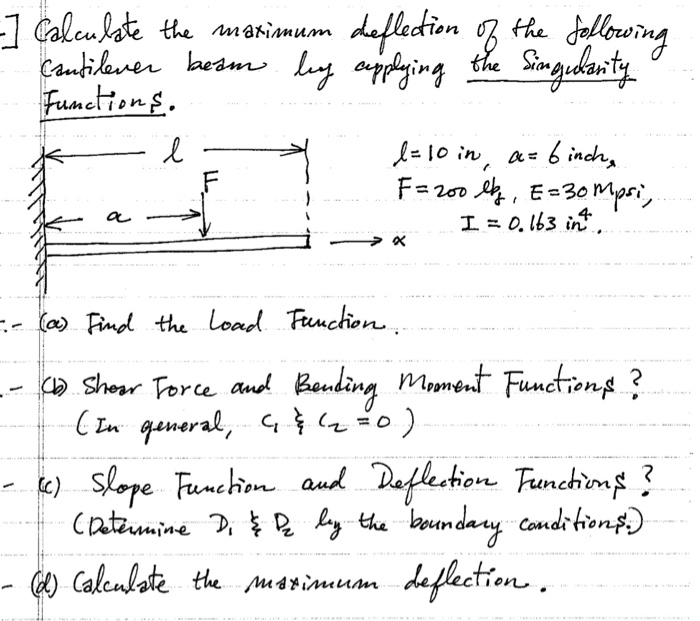 -] Calculate the maximum deflection of the following
Cantilever beam by applying the Singularity
Functions.
l
l = 10 in, a = 6 inch,
F
F = 200 lbf, E = 30 Mpsi,
a
I = 0.163 in⁴.
x
:- (a) Find the Load Function.
- (b) Shear Force and Bending Moment Functions?
(In general, C₁ & C₂ = 0)
- (c) Slope Function and Deflection Functions?
(Determine D₁ & D₂ by the boundary conditions.)
- (d) Calculate the maximum deflection.